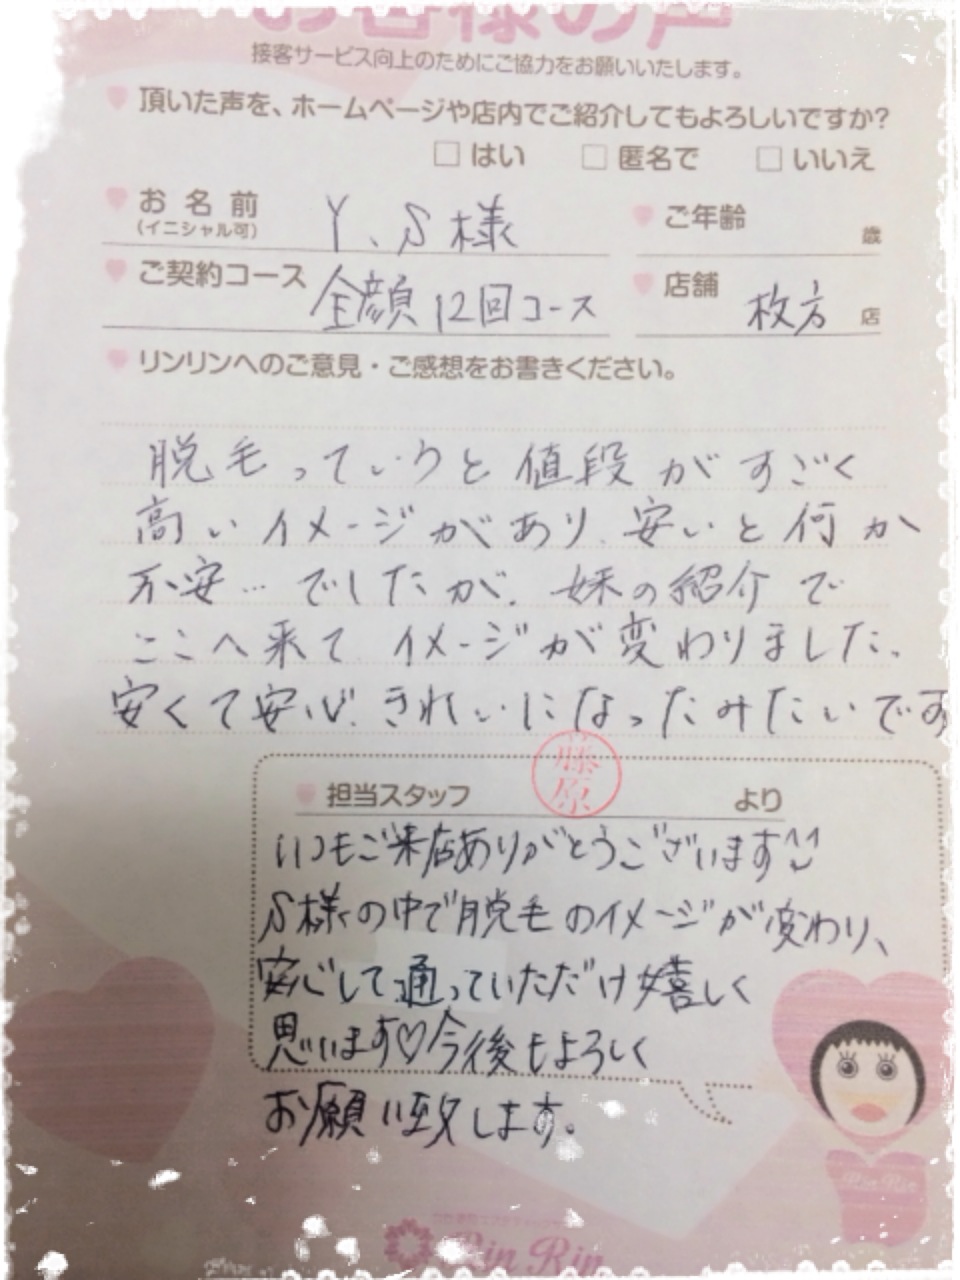 お客様の声
接客サービス向上のためにご協力をお願いいたします。
頂いた声を、ホームページや店内でご紹介してもよろしいですか?
□ はい □ 匿名で □ いいえ
お名前 Y、S様 ご年齢 歳
(イニシャル可)
ご契約コース 全顔12回コース 店舗 枚方 店
リンリンへのご意見・ご感想をお書きください。
脱毛っていうと値段がすごく
高いイメージがあり、安いと何か
不安…でしたが、妹の紹介で
ここへ来て イメージが変わりました。
安くて安心。きれいになったみたいです
担当スタッフ 藤原 より
いつもご来店ありがとうございます^^
S様の中で脱毛のイメージが変わり、
安心して通っていただけ嬉しく
思います♡今後もよろしく
お願い致します。
Rin Rin
Rin Rin